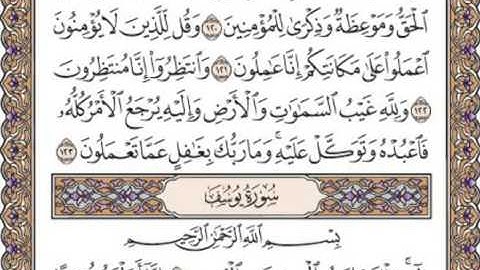 ٱلْحَقُّ وَمَوْعِظَةٌ وَذِكْرَىٰ لِلْمُؤْمِنِينَ ١٢٠ وَقُل لِّلَّذِينَ لَا يُؤْمِنُونَ
ٱعْمَلُوا۟ عَلَىٰ مَكَانَتِكُمْ إِنَّا عَٰمِلُونَ ١٢١ وَٱنتَظِرُوٓا۟ إِنَّا مُنتَظِرُونَ
١٢٢ وَلِلَّهِ غَيْبُ ٱلسَّمَٰوَٰتِ وَٱلْأَرْضِ وَإِلَيْهِ يُرْجَعُ ٱلْأَمْرُ كُلُّهُۥ
فَٱعْبُدْهُ وَتَوَكَّلْ عَلَيْهِ ۚ وَمَا رَبُّكَ بِغَٰفِلٍ عَمَّا تَعْمَلُونَ ١٢٣
سُورَةُ يُوسُفَ
بِسْمِ ٱللَّهِ ٱلرَّحْمَٰنِ ٱلرَّحِيمِ